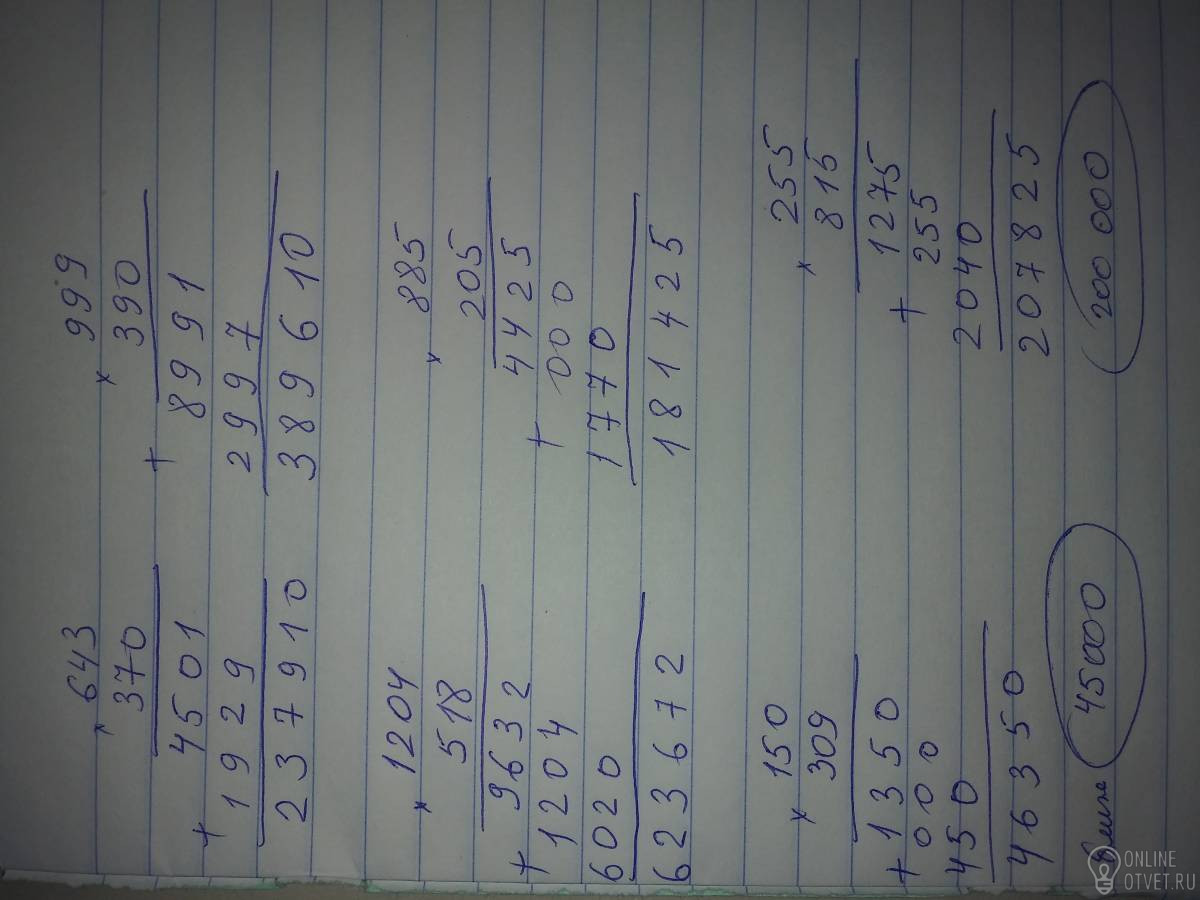 × 643
370
4501
+ 1929
237910
× 999
390
+ 8991
2997
389610
× 1204
518
+ 9632
1204
6020
623672
× 885
205
4425
+ 000
1770
181425
× 150
309
+ 1350
000
450
46350
45000
× 255
815
1275
+ 255
2040
207825
200 000
ONLINE
OTVET.RU